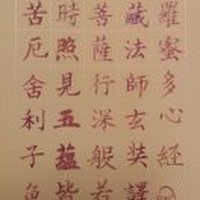 羅蜜多心經
藏法師玄奘譯
菩薩行深般若
時照見五蘊皆
苦厄舍利子